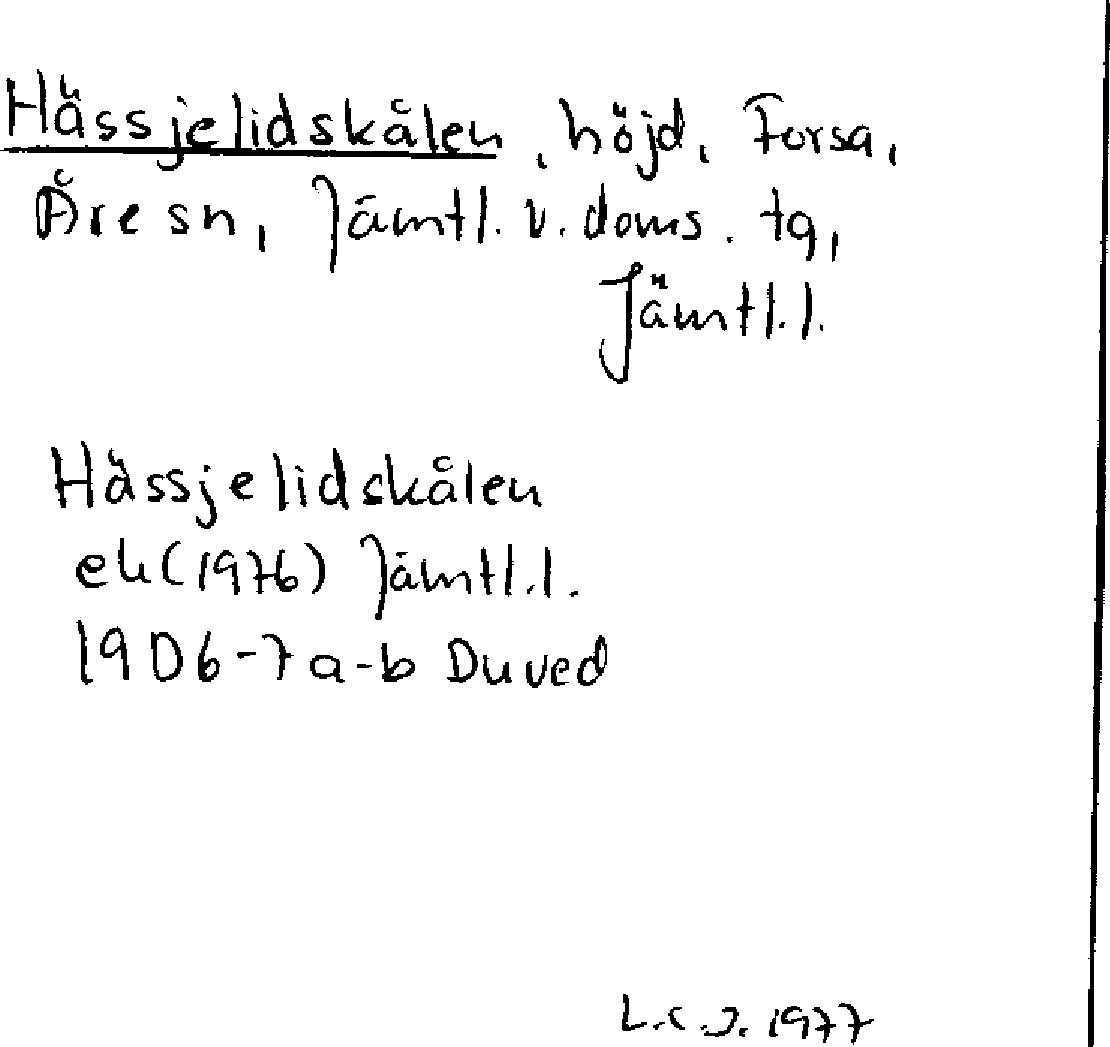 Hässjelidskålen, höjd, Forsa,
Åre sn, Jämtl. v. doms. tg,
Jämtl.l.
Hässjelidskålen
ek(1976) Jämtl.l.
19D6-7a-b Duved
L.C.J. 1977